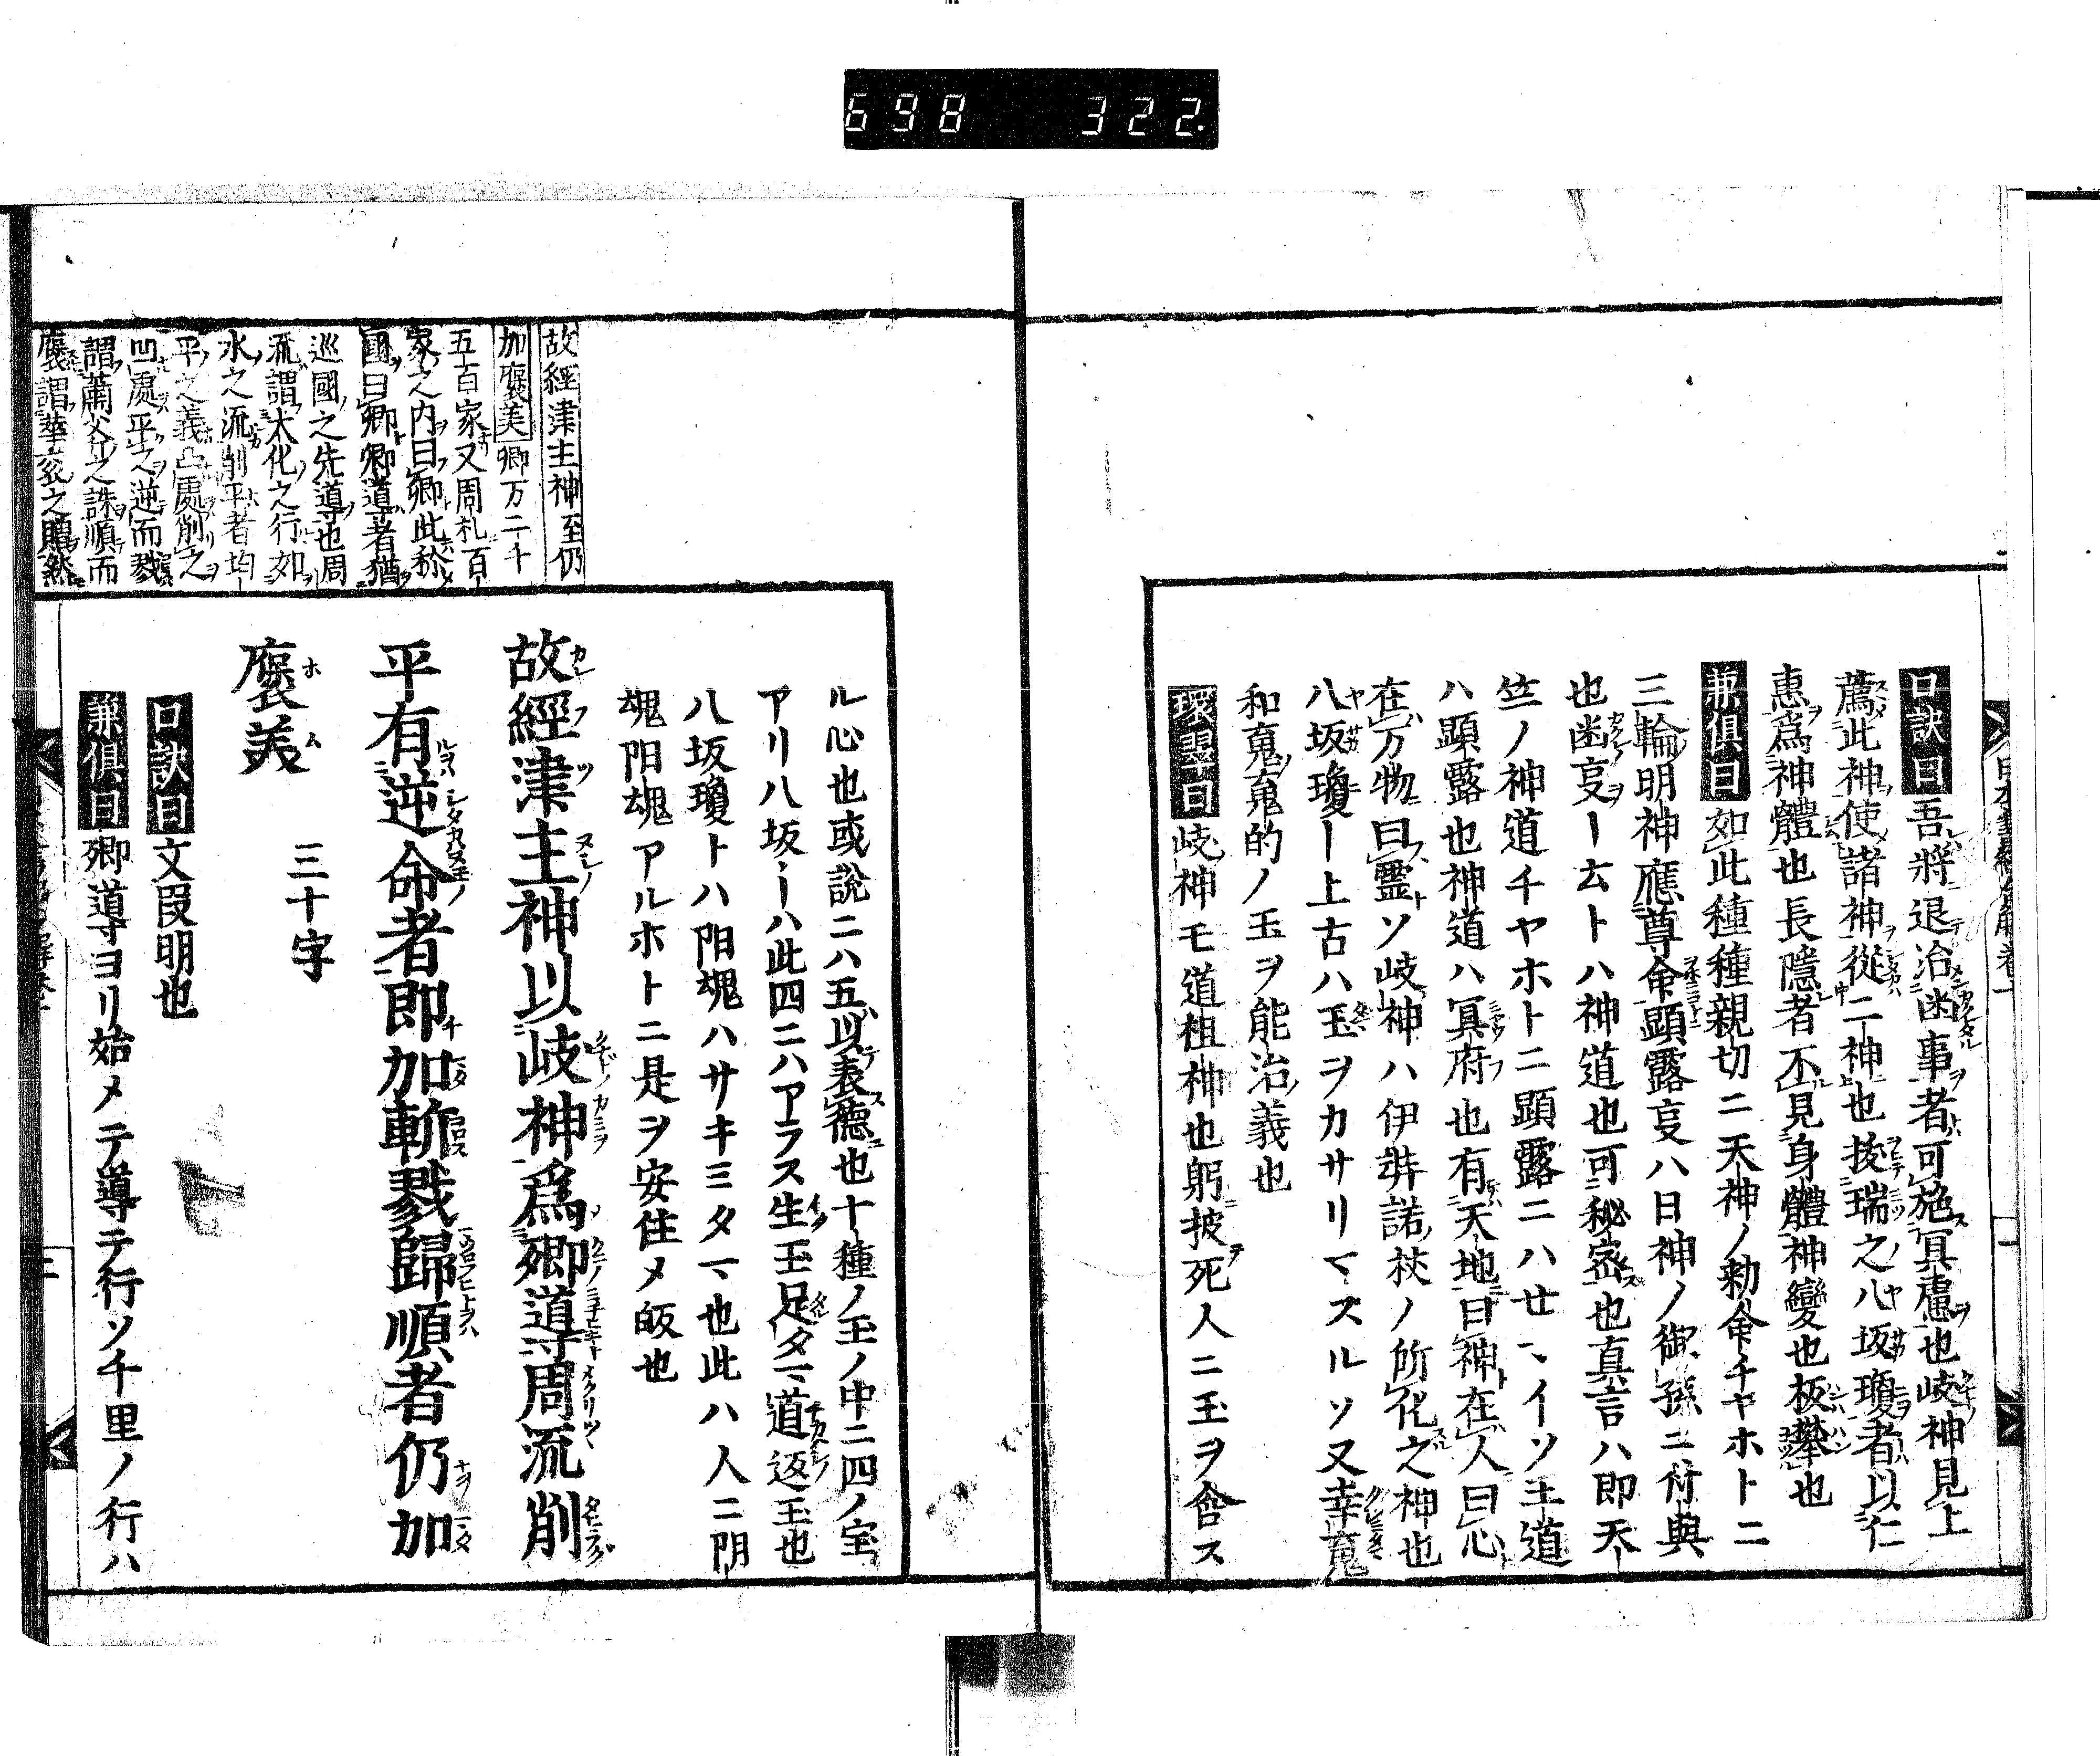 698 322.
口訣曰吾將退治凾事者可施冥慮也岐神見上
薦此神使諸神從二神也披瑞之八坂瓊者以仁
惠爲神體也長隱者不見身體神變也板攀也
兼俱曰如此種種親切ニ天神ノ勅命チヤホトニ
三輪明神應尊命顯露㕝ハ日神ノ御孫ニ付與
也凾㕝ー云トハ神道也可秘密也真言ハ即天
竺ノ神道チヤホトニ顯露ニハせヽイソ王道
ハ顯露也神道ハ冥府也有天地曰神在人曰心
在万物曰霊ソ岐神ハ伊弉諾杖ノ所化之神也
八坂瓊ー上古ハ玉ヲカサリマスルソ又幸䰟
和䰟䰟的ノ玉ヲ能治義也
環翠曰岐神モ道祖神也躬披死人ニ玉ヲ含ス
ル心也或說ニハ五以表德也十種ノ玉ノ中ニ四ノ宝
アリ八坂ーハ此四ニハアラス生玉足タマ道返玉也
八坂瓊トハ阳魂ハサキミタマ也此ハ人ニ阴
魂阳魂アルホトニ是ヲ安住メ皈也
故經津主神以岐神爲鄉導周流削
平有逆命者即加斬戮歸順者仍加
褒美 三十字
口訣曰文叚明也
兼俱曰鄉導ヨリ始メテ導テ行ソ千里ノ行ハ
故經津主神至仍
加褒美鄉万二千
五百家又周礼百
家之内曰鄉此称
國曰鄉鄉導者猶
巡國之先導也周
流謂大化之行如
水之流削平者均
平之義凸處削之
凹處平之逆而戮
謂蕭斧之誅順而
褒謂華袞之贈然